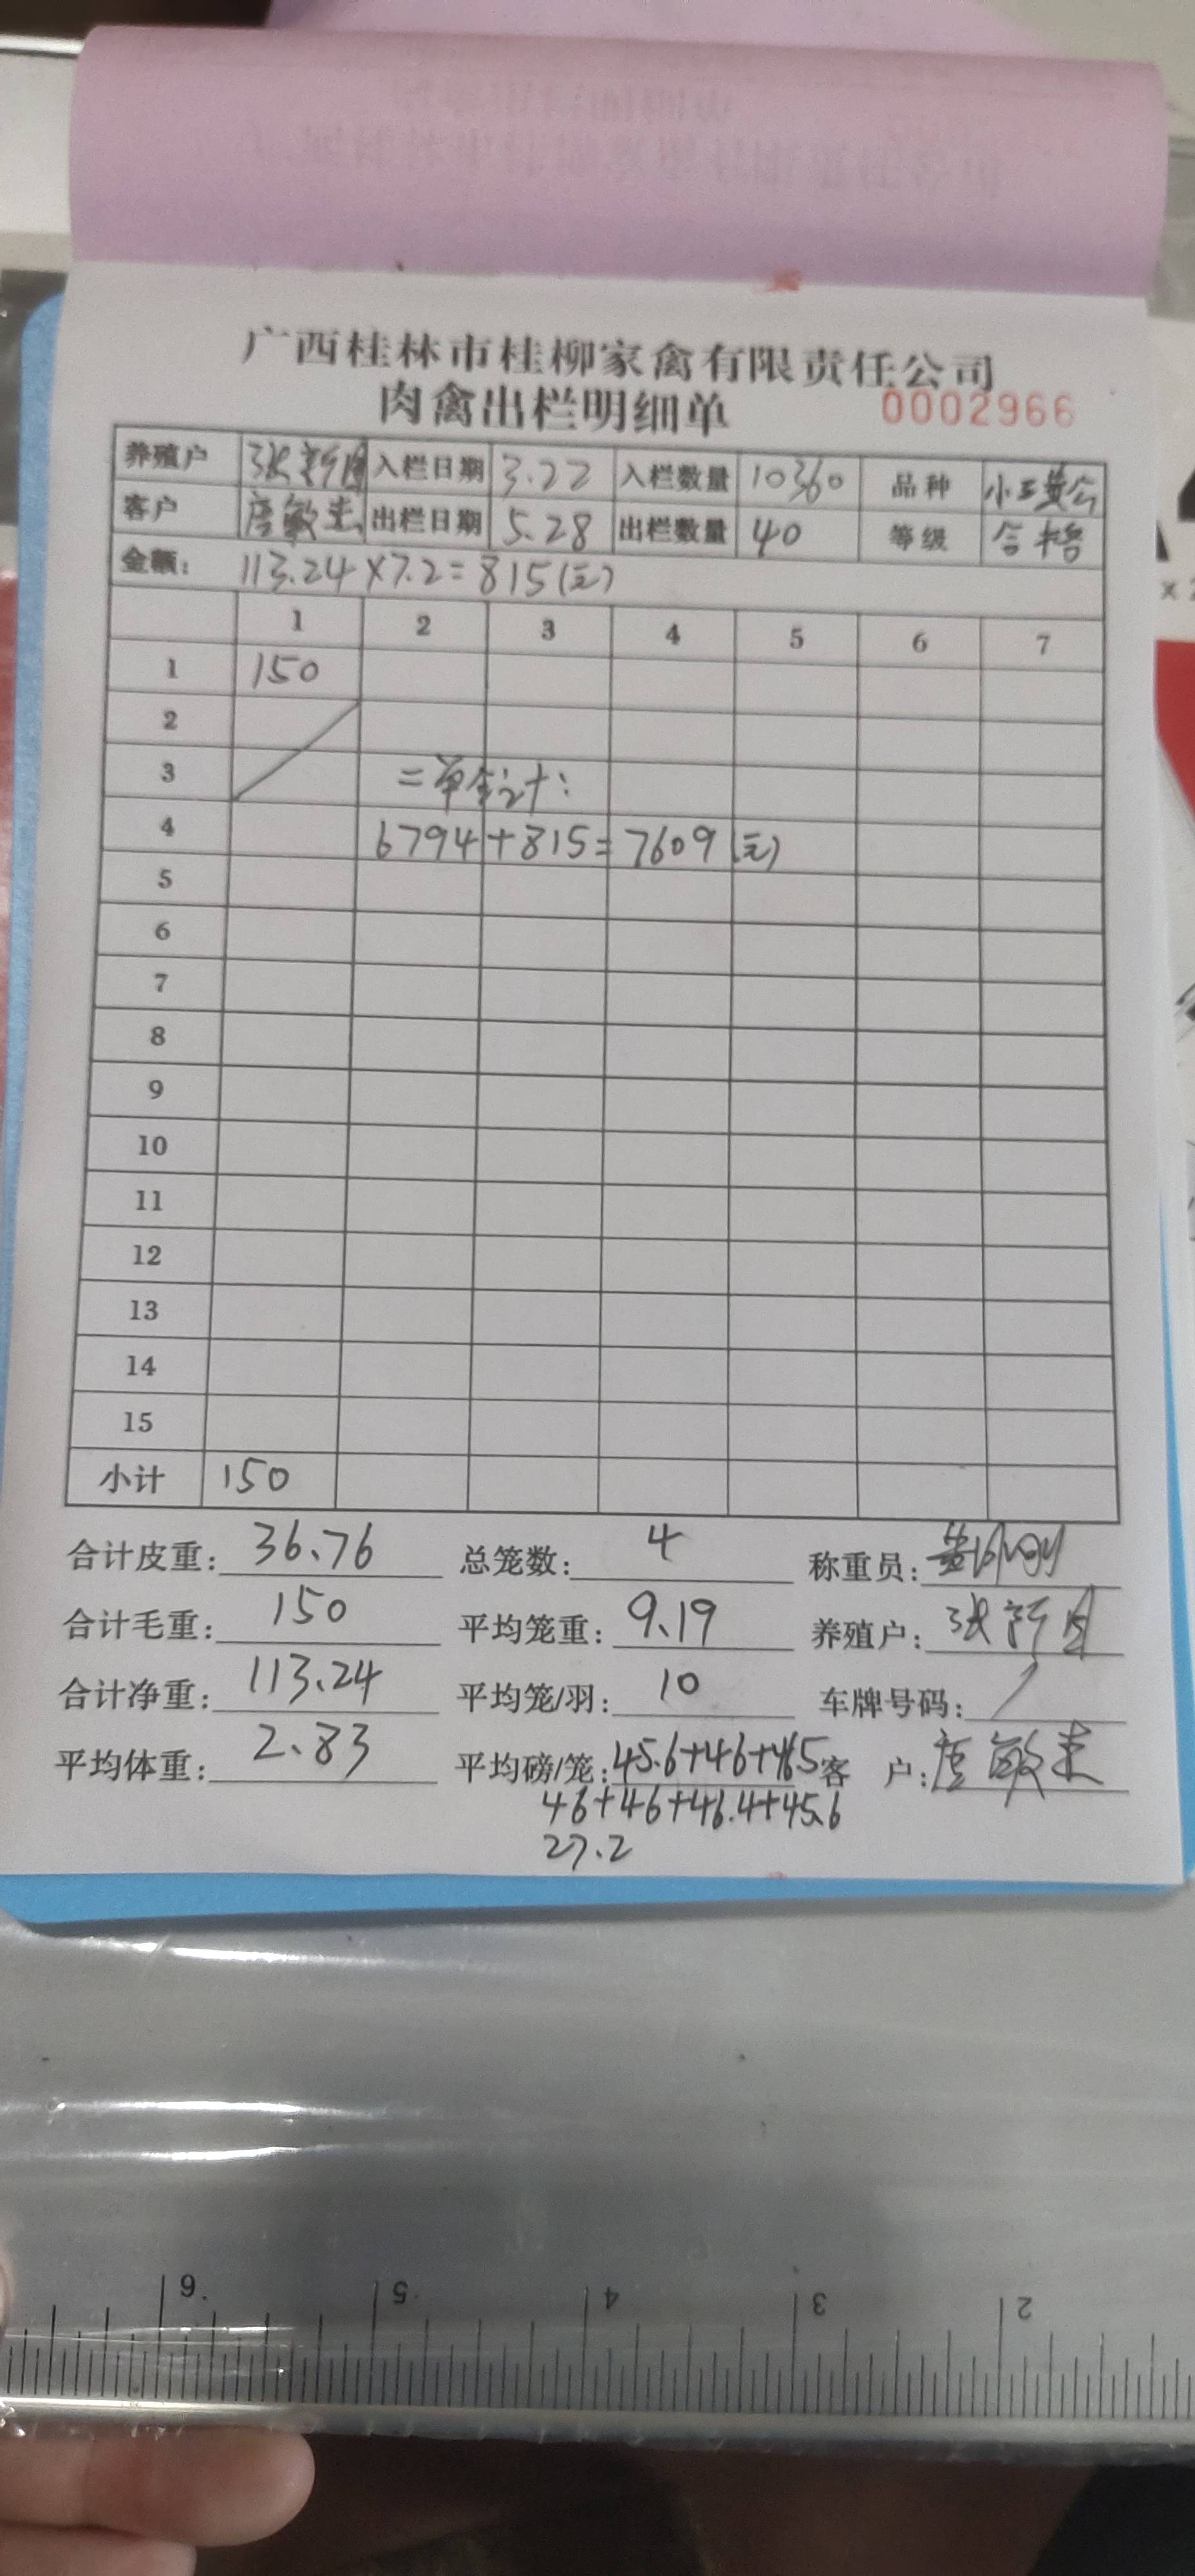 广西桂林市桂柳家禽有限责任公司
肉禽出栏明细单 0002966
养殖户 张新国 入栏日期 3.22 入栏数量 10360 品种 小三黄公
客户 唐敏志 出栏日期 5.28 出栏数量 40 等级 合格
金额: 113.24×7.2=815(元)
1 2 3 4 5 6 7
1 150
2
3 二单合计:
4 6794+815=7609(元)
5
6
7
8
9
10
11
12
13
14
15
小计 150
合计皮重: 36.76 总笼数: 4 称重员:
合计毛重: 150 平均笼重: 9.19 养殖户: 张新国
合计净重: 113.24 平均笼/羽: 10 车牌号码: /
平均体重: 2.83 平均磅/笼: 45.6+46+46.5 客 户: 唐敏志
46+46+46.4+45.6
27.2
6 5 4 3 2